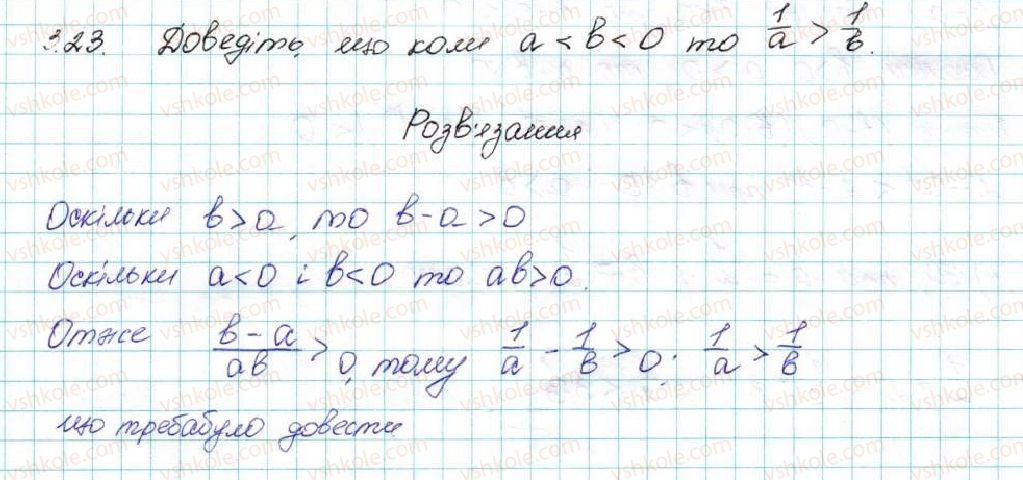 3.23. Доведіть, що коли a < b < 0 то 1/a > 1/b.
Розв'язання
Оскільки b > a, то b - a > 0
Оскільки a < 0 і b < 0 то ab > 0.
Отже (b - a)/ab > 0, тому 1/a - 1/b > 0; 1/a > 1/b
що требабуло довести